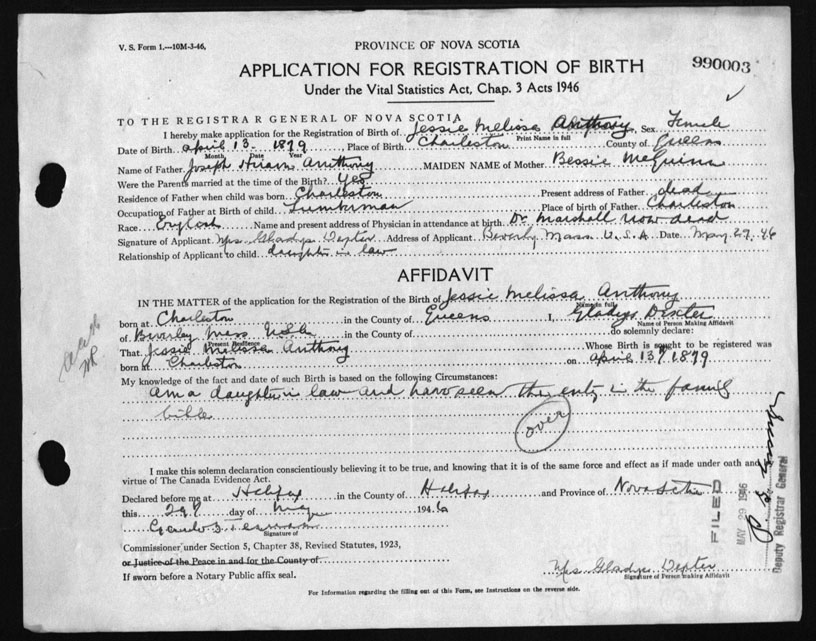 V. S. Form 1.—10M-3-46.
PROVINCE OF NOVA SCOTIA
990003
APPLICATION FOR REGISTRATION OF BIRTH
Under the Vital Statistics Act, Chap. 3 Acts 1946
TO THE REGISTRAR GENERAL OF NOVA SCOTIA
I hereby make application for the Registration of Birth of Jessie Melissa Anthony Sex Female
Print Name in full
Date of Birth april 13 1879 Place of Birth Charleston County of Queens
Month Date Year
Name of Father Joseph Hiram Anthony MAIDEN NAME of Mother Bessie McGuinn
Were the Parents married at the time of the Birth? Yes
Residence of Father when child was born Charleston Present address of Father dead
Occupation of Father at Birth of child Lumberman Place of birth of Father Charleston
Race English Name and present address of Physician in attendance at birth Dr Marshall now dead
Signature of Applicant Mrs Gladys Dexter Address of Applicant Beverly Mass U.S.A Date May 27, 46
Relationship of Applicant to child daughter in law
AFFIDAVIT
IN THE MATTER of the application for the Registration of the Birth of Jessie Melissa Anthony
Name in full
born at Charleston in the County of Queens I, Gladys Dexter
Name of Person Making Affidavit
of Beverley Mass in the County of do solemnly declare:
Present Residence
That Jessie Melissa Anthony Whose Birth is sought to be registered was
born at Charleston on april 13 1879
My knowledge of the fact and date of such Birth is based on the following Circumstances:
am a daughter in law and have seen the entry in the family
bible
over
I make this solemn declaration conscientiously believing it to be true, and knowing that it is of the same force and effect as if made under oath and
virtue of The Canada Evidence Act.
Declared before me at Halifax in the County of Halifax and Province of Nova Scotia
this 29 day of May 1946
Signature of
Commissioner under Section 5, Chapter 38, Revised Statutes, 1923,
or Justice of the Peace in and for the County of
If sworn before a Notary Public affix seal.
Mrs Gladys Dexter
Signature of Person making Affidavit
For Information regarding the filling out of this Form, see Instructions on the reverse side.
FILED
MAY 29 1946
Deputy Registrar General